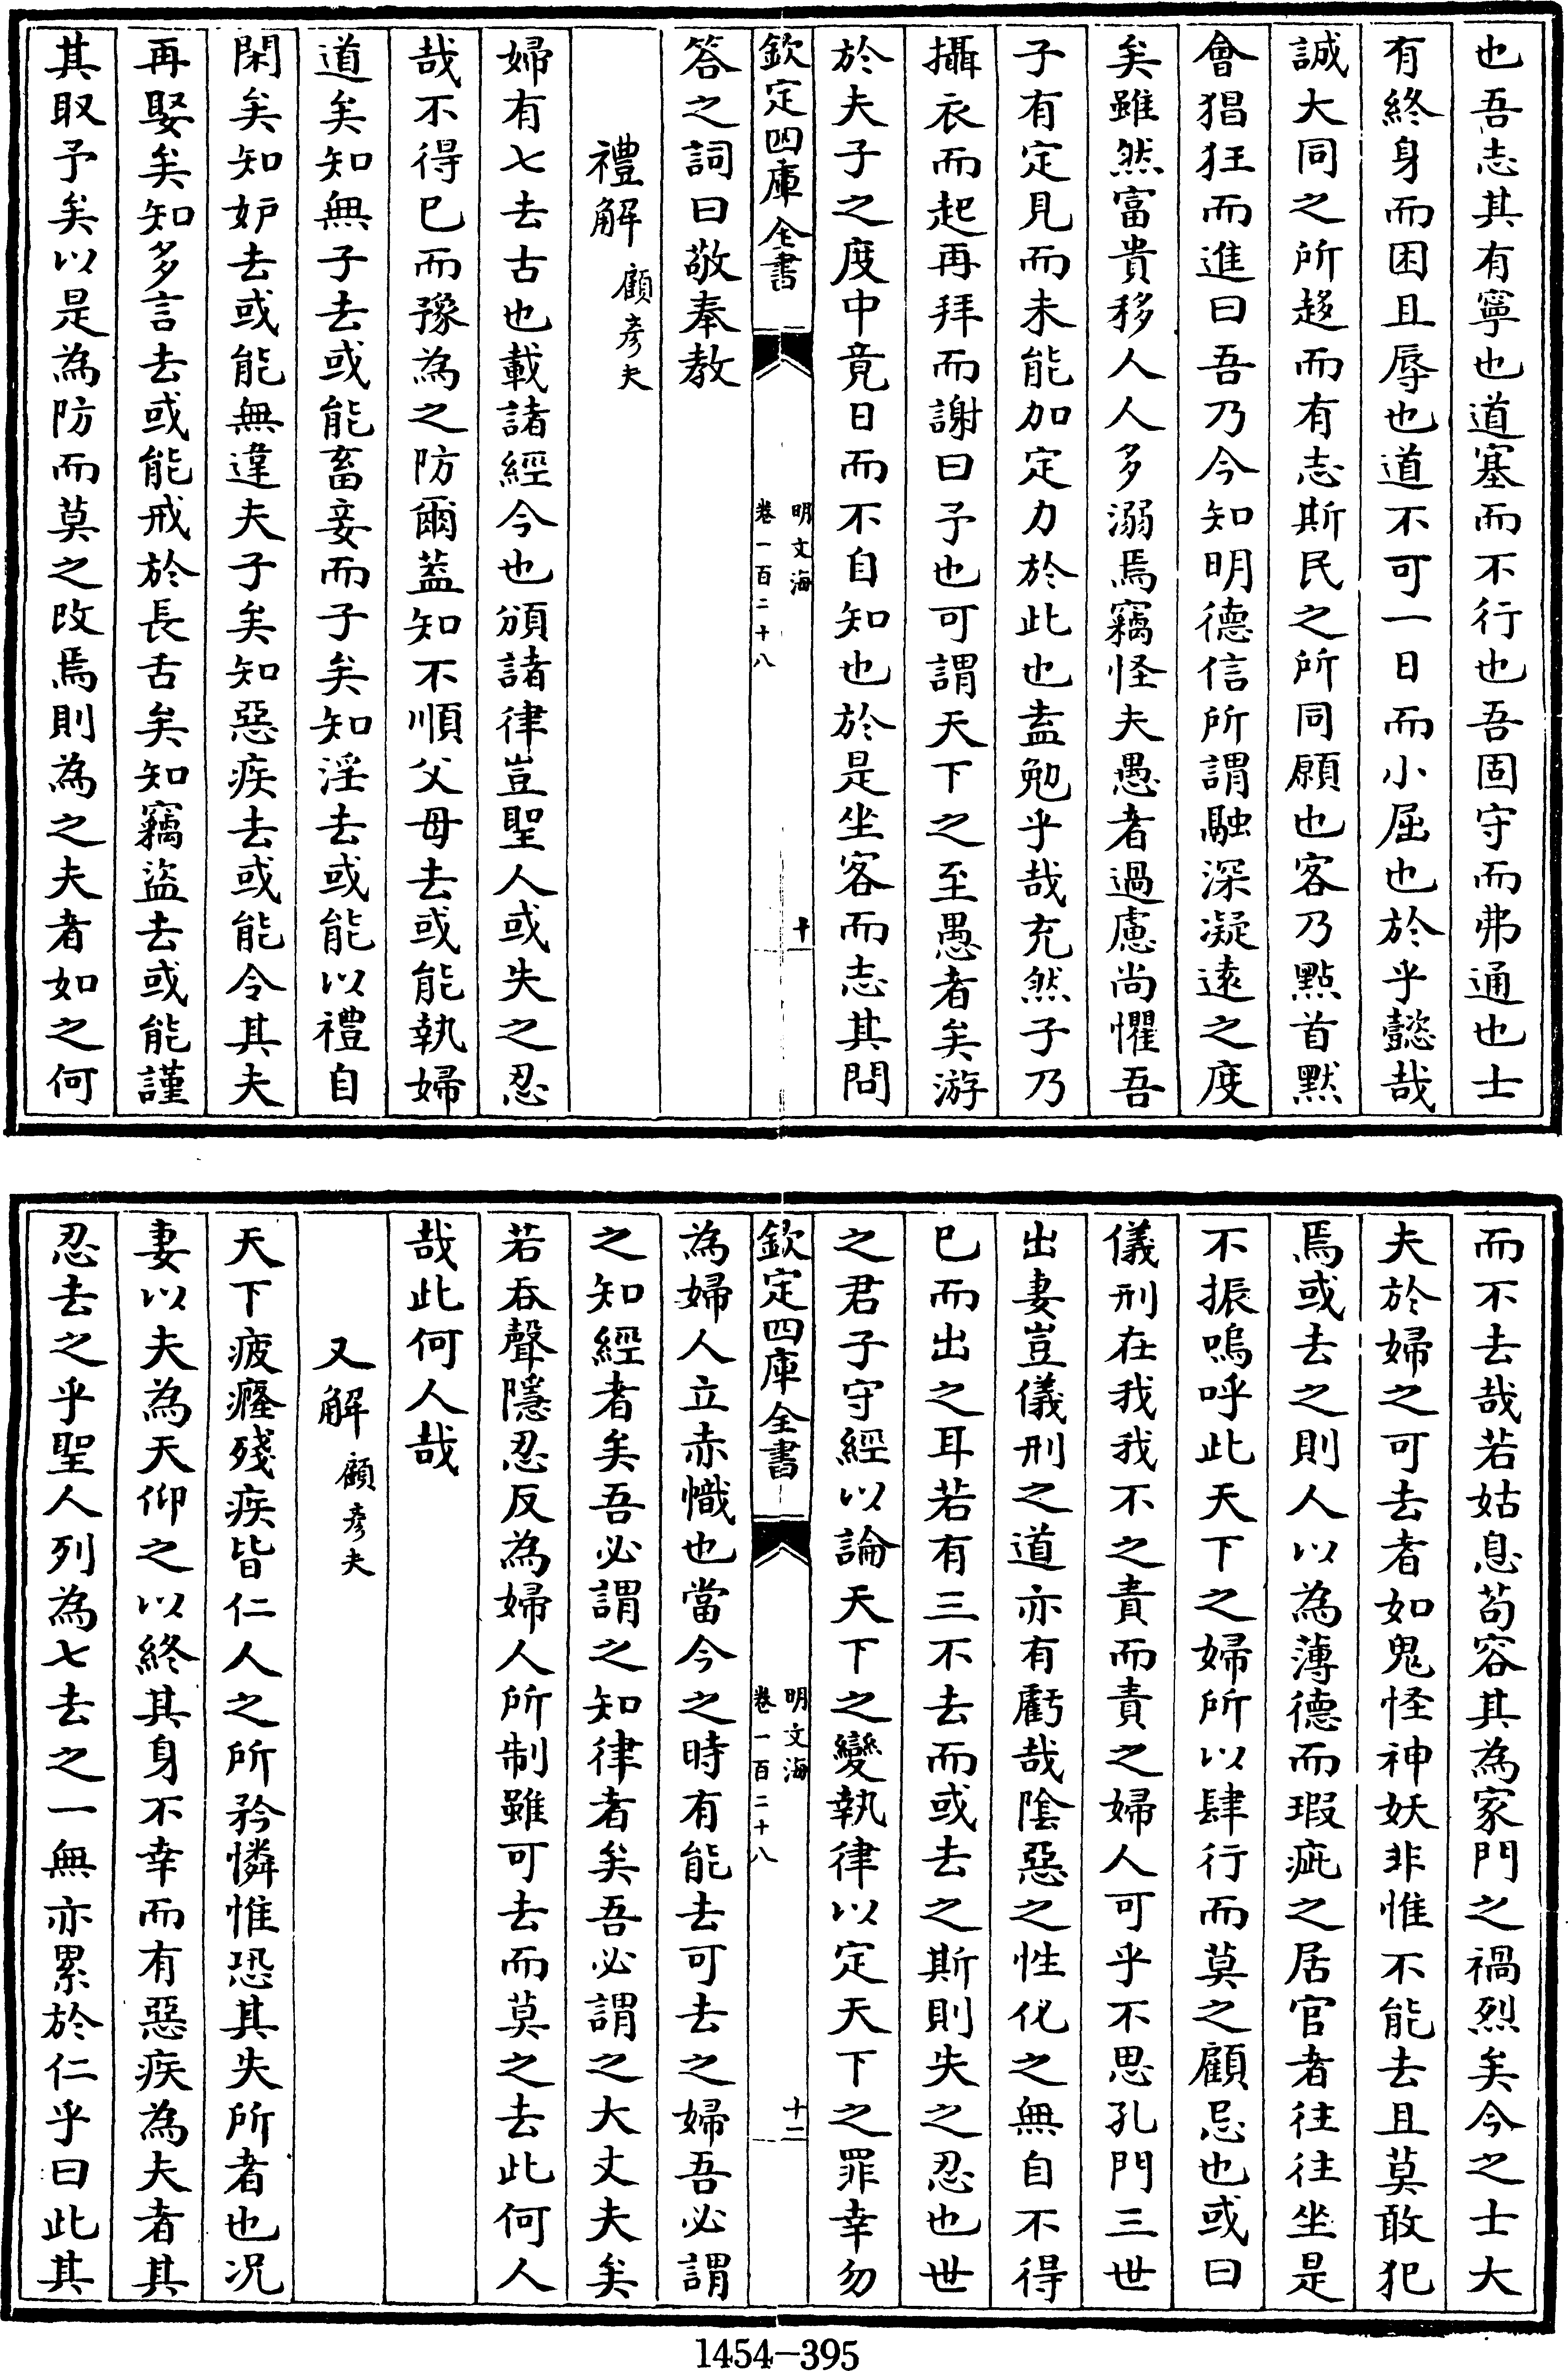 也吾志其有寧也道塞而不行也吾固守而弗通也士
有終身而困且辱也道不可一日而小屈也於乎懿哉
誠大同之所趍而有志斯民之所同願也客乃點首默
會猖狂而進曰吾乃今知明德信所謂融深凝逺之度
矣雖然富貴移人人多溺焉竊怪夫愚者過慮尚懼吾
子有定見而未能加定力於此也盍勉乎哉充然子乃
攝衣而起再拜而謝曰予也可謂天下之至愚者矣游
於夫子之度中竟日而不自知也於是坐客而志其問
欽定四庫全書
明文海
卷一百二十八
十
答之詞曰敬奉教
禮解 顧彥夫
婦有七去古也載諸經今也頒諸律豈聖人或失之忍
哉不得已而豫為之防爾葢知不順父母去或能執婦
道矣知無子去或能畜妾而子矣知淫去或能以禮自
閑矣知妒去或能無違夫子矣知惡疾去或能令其夫
再娶矣知多言去或能戒於長舌矣知竊盜去或能謹
其取予矣以是為防而莫之改焉則為之夫者如之何
而不去哉若姑息苟容其為家門之禍烈矣今之士大
夫於婦之可去者如鬼怪神妖非惟不能去且莫敢犯
焉或去之則人以為薄德而瑕疵之居官者往往坐是
不振嗚呼此天下之婦所以肆行而莫之顧忌也或曰
儀刑在我我不之責而責之婦人可乎不思孔門三世
出妻豈儀刑之道亦有虧哉隂惡之性化之無自不得
已而出之耳若有三不去而或去之斯則失之忍也世
之君子守經以論天下之變執律以定天下之罪幸勿
欽定四庫全書
明文海
卷一百二十八
十二
為婦人立赤幟也當今之時有能去可去之婦吾必謂
之知經者矣吾必謂之知律者矣吾必謂之大丈夫矣
若吞聲隱忍反為婦人所制雖可去而莫之去此何人
哉此何人哉
又解 顧彥夫
天下疲癃殘疾皆仁人之所矜憐惟恐其失所者也况
妻以夫為天仰之以終其身不幸而有惡疾為夫者其
忍去之乎聖人列為七去之一無亦累於仁乎曰此其
1454-395